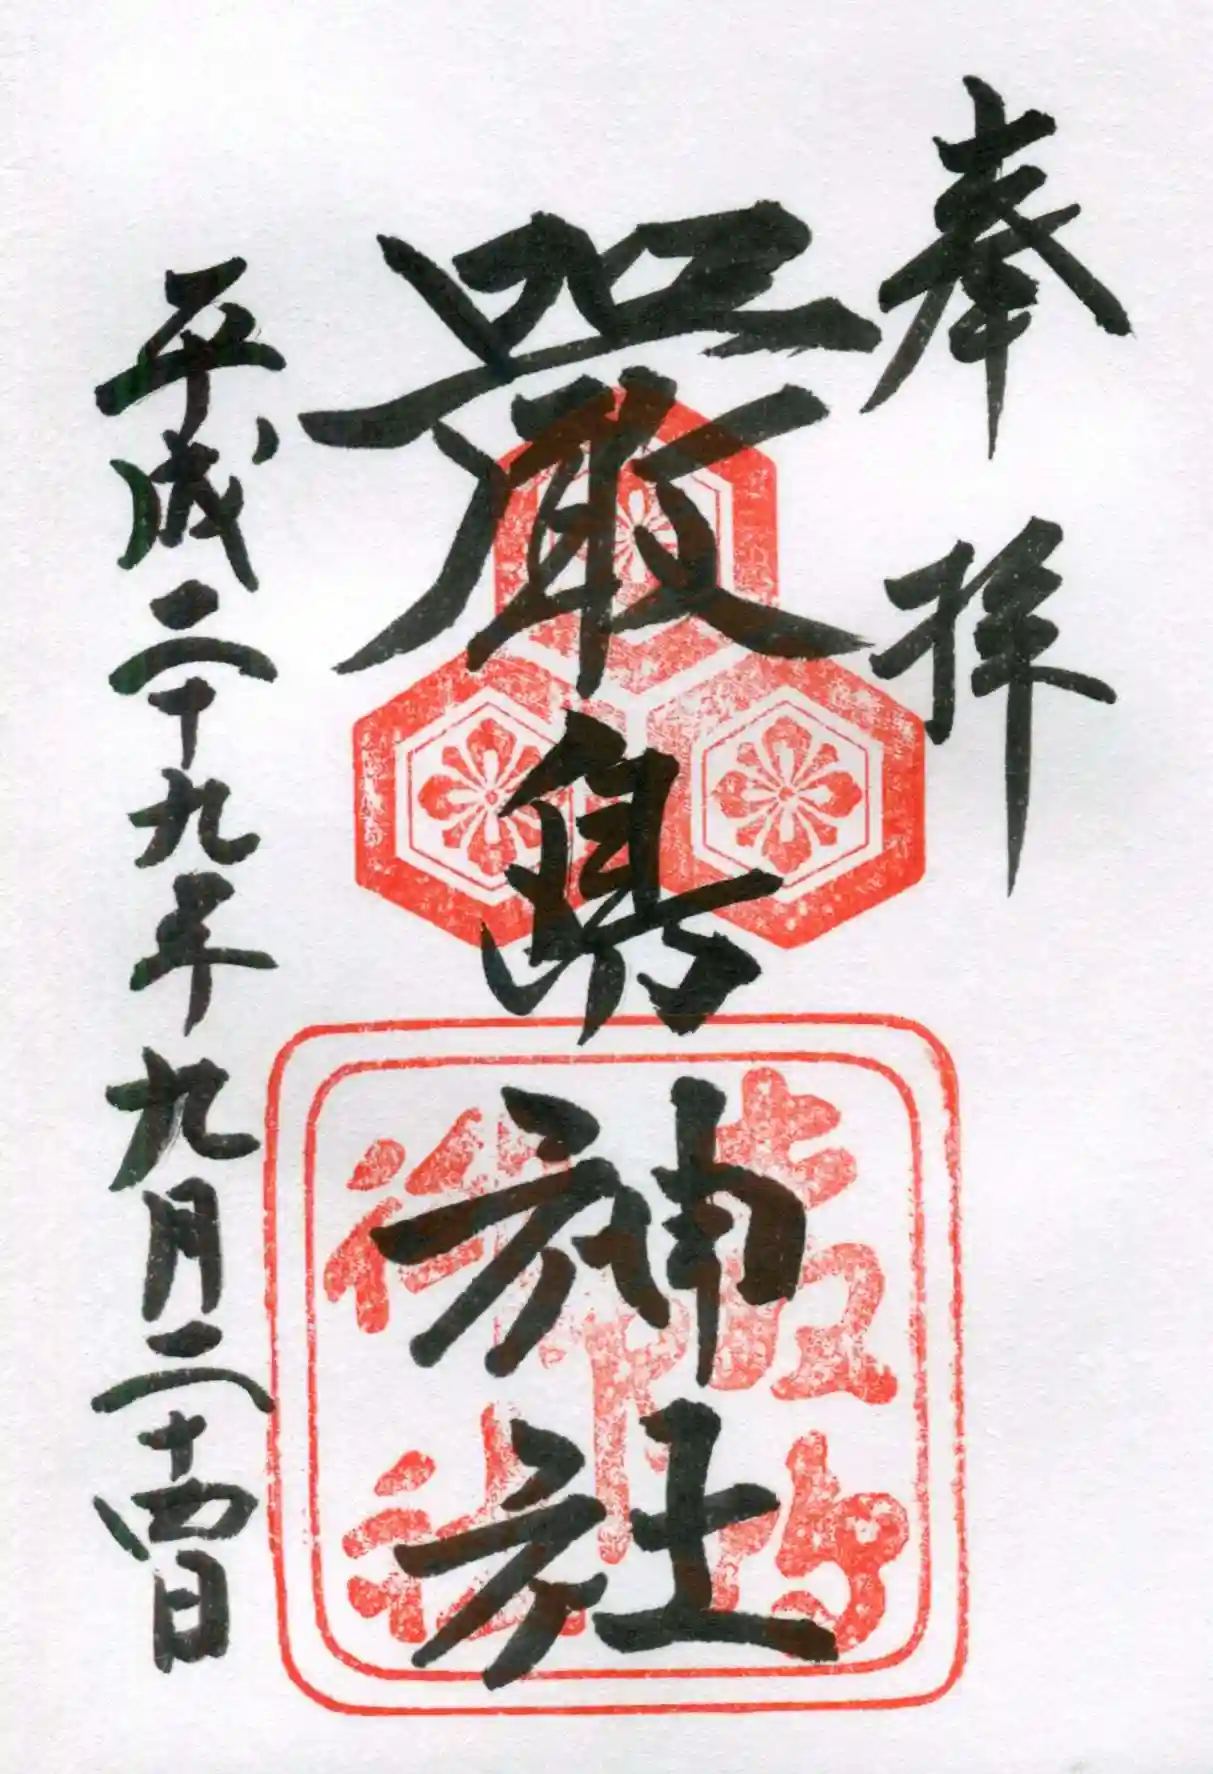 奉拝
嚴島神社
平成二十九年九月二十四日